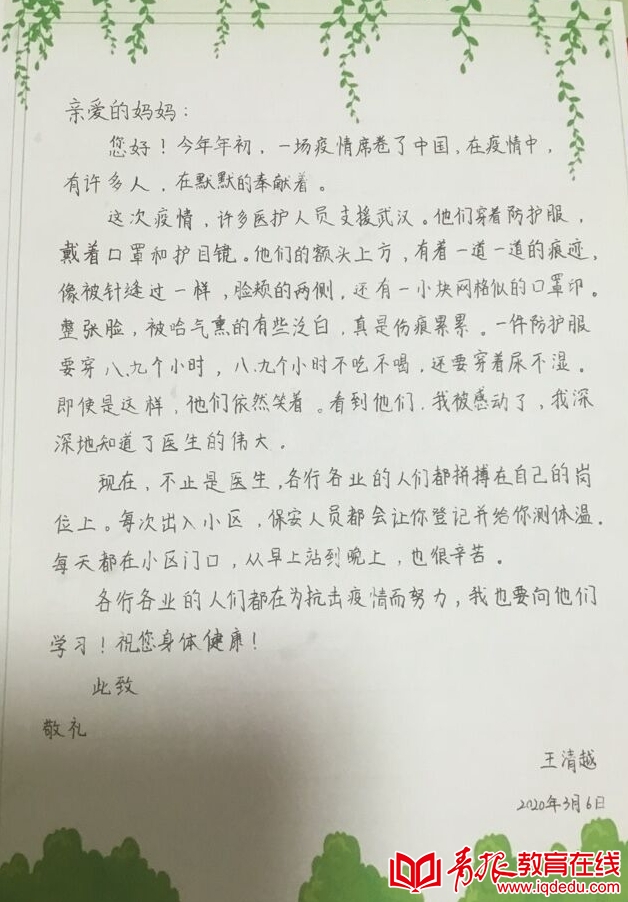 亲爱的妈妈：
您好！今年年初，一场疫情席卷了中国，在疫情中，
有许多人，在默默的奉献着。
这次疫情，许多医护人员支援武汉。他们穿着防护服，
戴着口罩和护目镜。他们的额头上方，有着一道一道的痕迹，
像被针缝过一样，脸颊的两侧，还有一小块网格似的口罩印。
整张脸，被哈气熏的有些泛白，真是伤痕累累。一件防护服
要穿八、九个小时，八、九个小时不吃不喝，还要穿着尿不湿。
即使是这样，他们依然笑着。看到他们，我被感动了，我深
深地知道了医生的伟大。
现在，不止是医生，各行各业的人们都拼搏在自己的岗
位上。每次出入小区，保安人员都会让你登记并给你测体温。
每天都在小区门口，从早上站到晚上，也很辛苦。
各行各业的人们都在为抗击疫情而努力，我也要向他们
学习！祝您身体健康！
此致
敬礼
王清越
2020年3月6日
青报教育在线
www.iqdedu.com